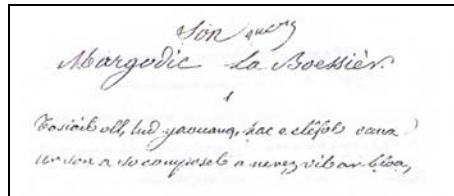 Son
Margodic La Boessièr.
1
Tostait oll, tud yaouanq, hac e clefot cana
ur son a so composet a nevez vit ar bloa,